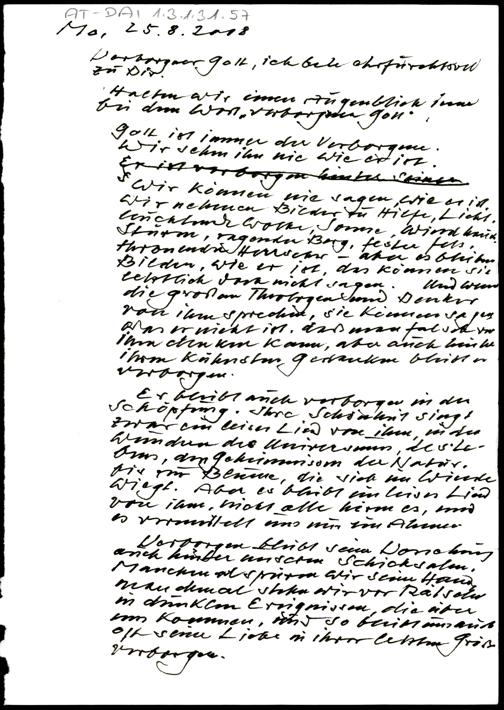 AT-DAI 1.3.1.31.57
Mo, 25.8.2018
Verborgener Gott, ich bete ehrfürchtsvoll
zu Dir.
Halten wir einen Augenblick inne
bei dem Wort „verborgener Gott".
Gott ist immer der Verborgene.
Wir sehen ihn nie wie er ist.
Er ist verborgen hinter seinen
Wir können nie sagen, wie er ist.
Wir nehmen Bilder zu Hilfe, Licht,
leuchtende Wolke, Sonne, Windhauch
Sturm, ragender Berg, fester Fels,
thronender Herrscher – aber es bleiben
Bilder, wie er ist, das können sie
letztlich doch nicht sagen. Und wenn
die großen Theologen und Denker
von ihm sprechen, sie können sagen
was er nicht ist, daß man falsch von
ihm denken kann, aber auch hinter
ihren kühnsten Gedanken bleibt er
verborgen.
Er bleibt auch verborgen in der
Schöpfung. Ihre Schönheit singt
zwar ein leises Lied von ihm, in den
Wundern des Universums, des
den Geheimnissen der Natur,
bis zur Blume, die sich im Winde
wiegt. Aber es bleibt ein leises Lied
von ihm, nicht alle hören es, und
es vermittelt uns nur ein Ahnen
Verborgen bleibt seine Vorsehung
auch hinter unserem Schicksalen.
Manchmal spüren wir seine Hand
manchmal stehen wir vor Rätseln
in dunklen Ereignissen, die über
uns kommen, und so bleibt uns auch
oft seine Liebe in ihrer letzten Größe
verborgen.